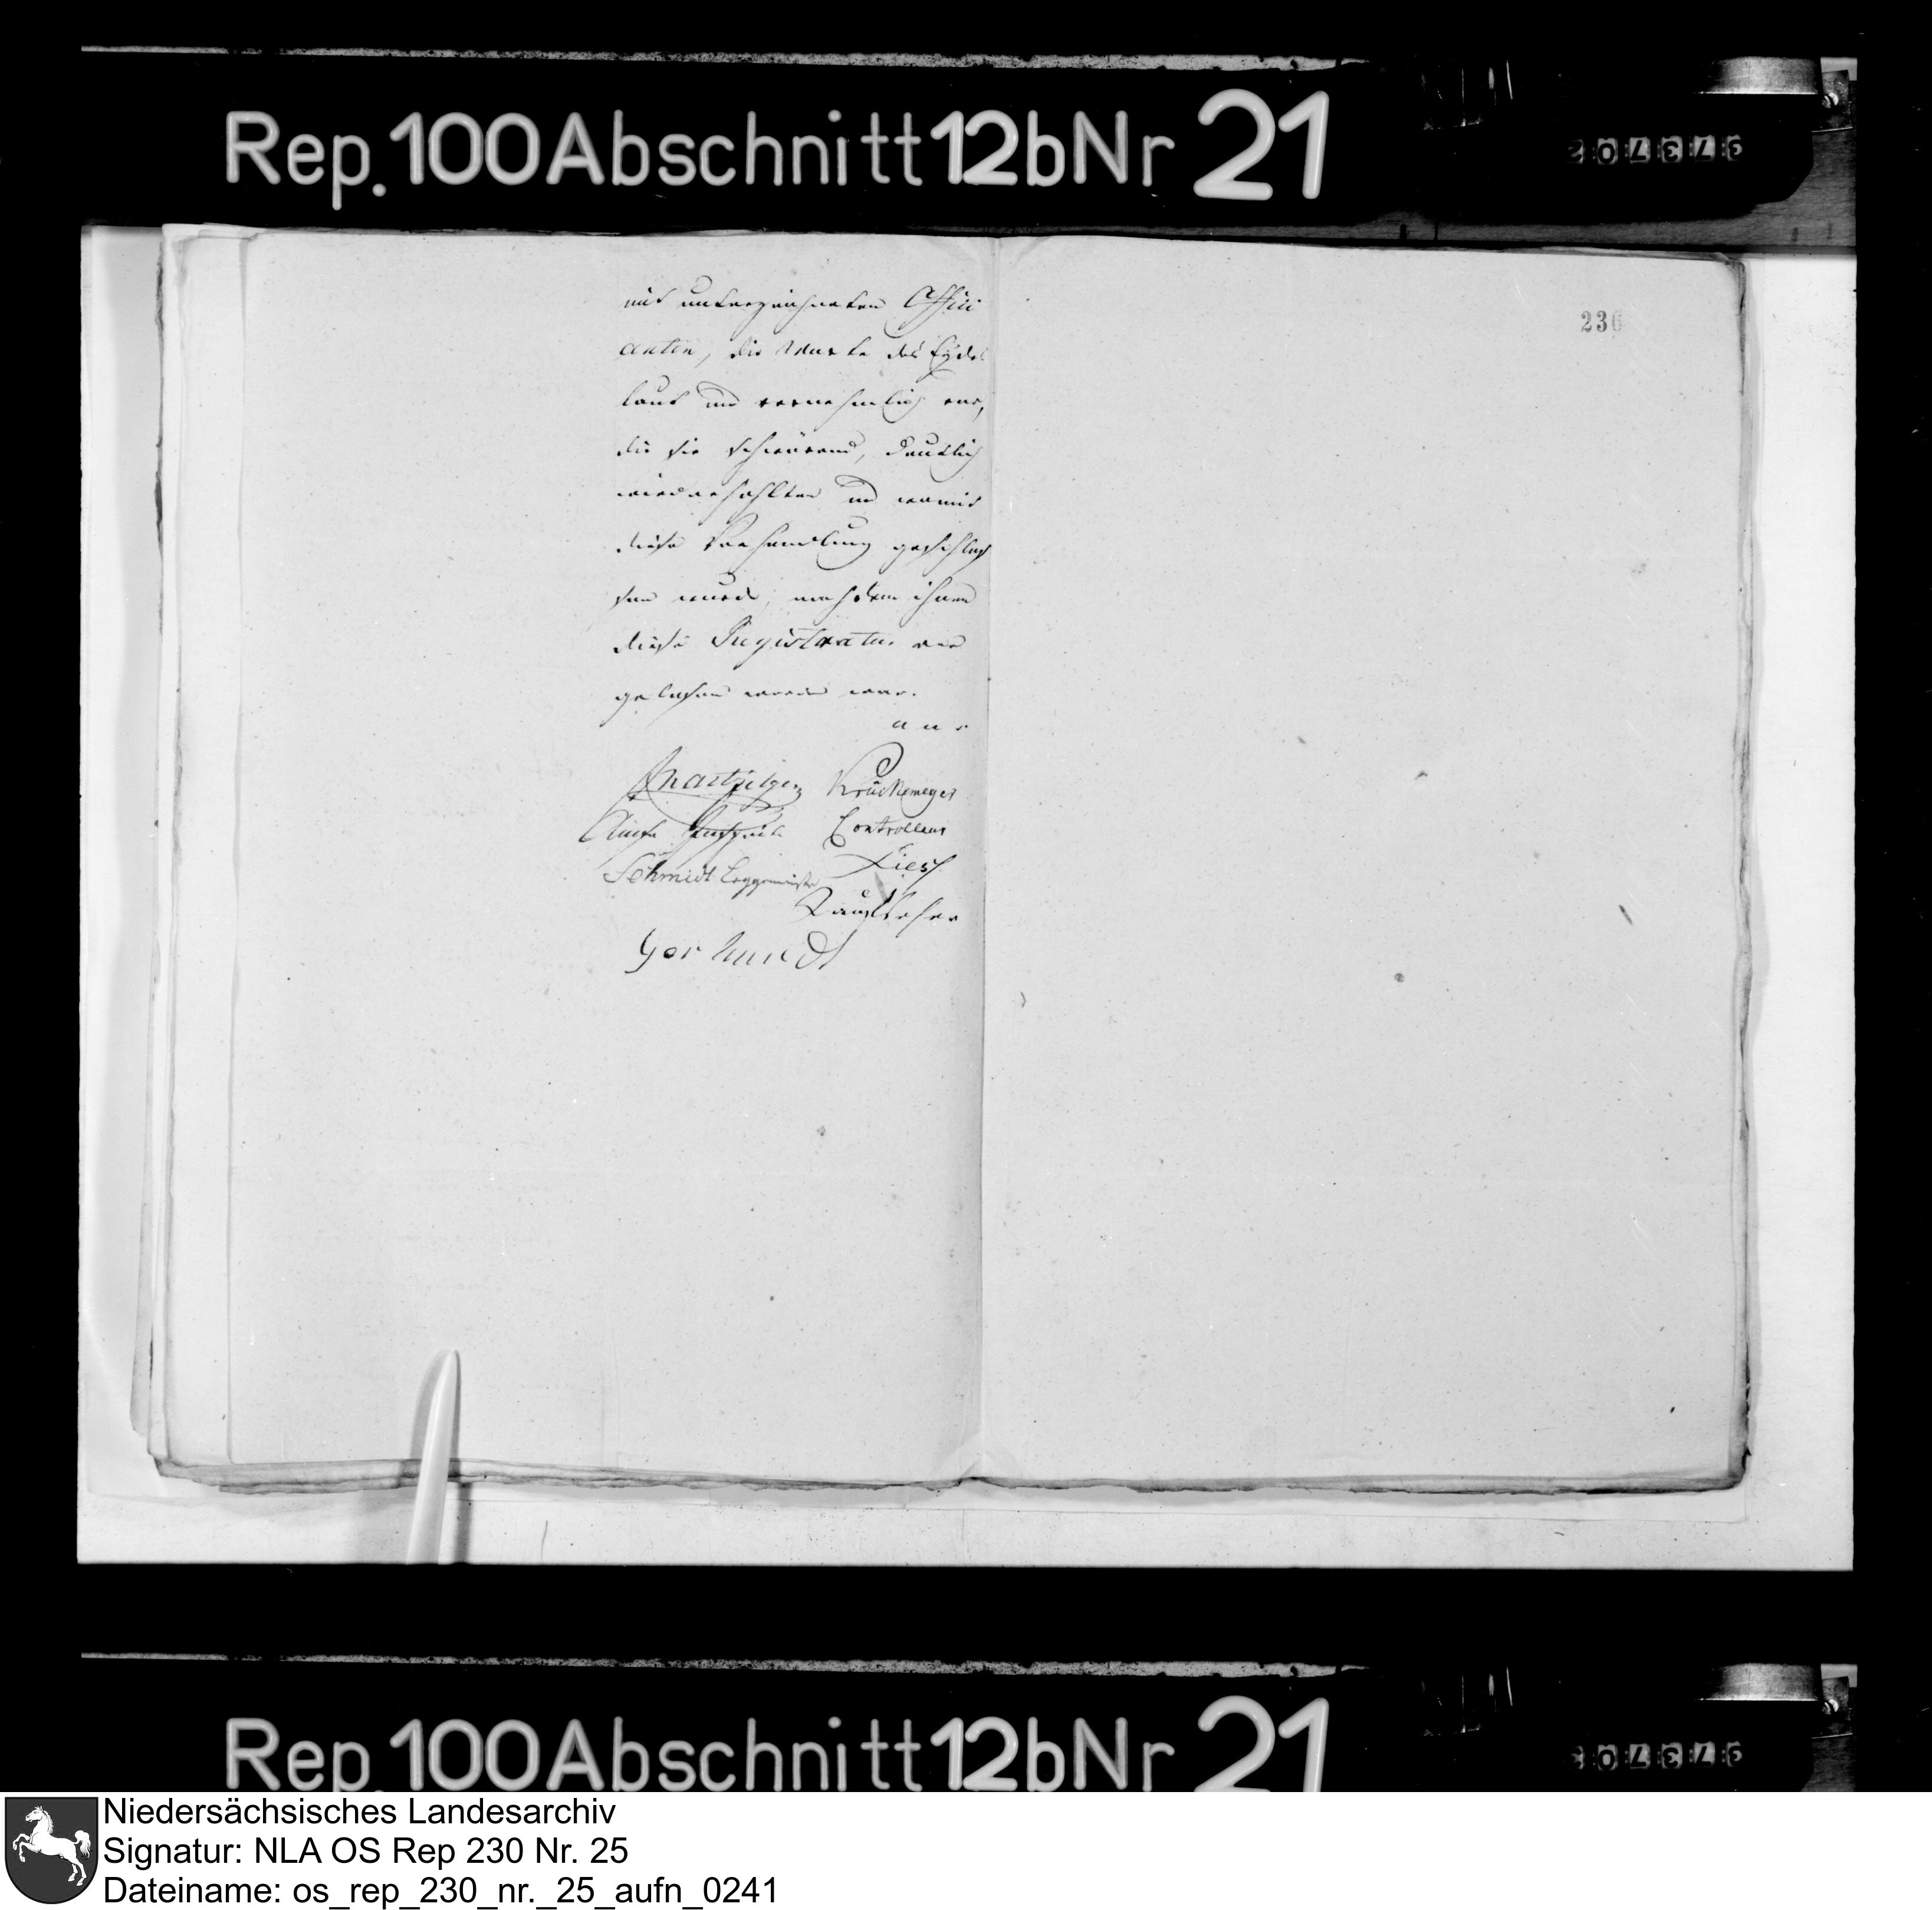 Rep. 100 Abschnitt 12b Nr 21
mit unterzeichneten Offici
anten, die Worte des Eydes
laut und vernehmlich vor,
die sie schwörend, deutlich
wiederhohlten und womit
diese Verhandlung geschlos
sen wurde, nachdem ihnen
diese Registratur vor
gelesen worden war.
236
Kruckemeyer
Controlleur
Schmidt Leggemeister
Rep. 100 Abschnitt 12b Nr 21
Niedersächsisches Landesarchiv
Signatur: NLA OS Rep 230 Nr. 25
Dateiname: os_rep_230_nr._25_aufn_0241